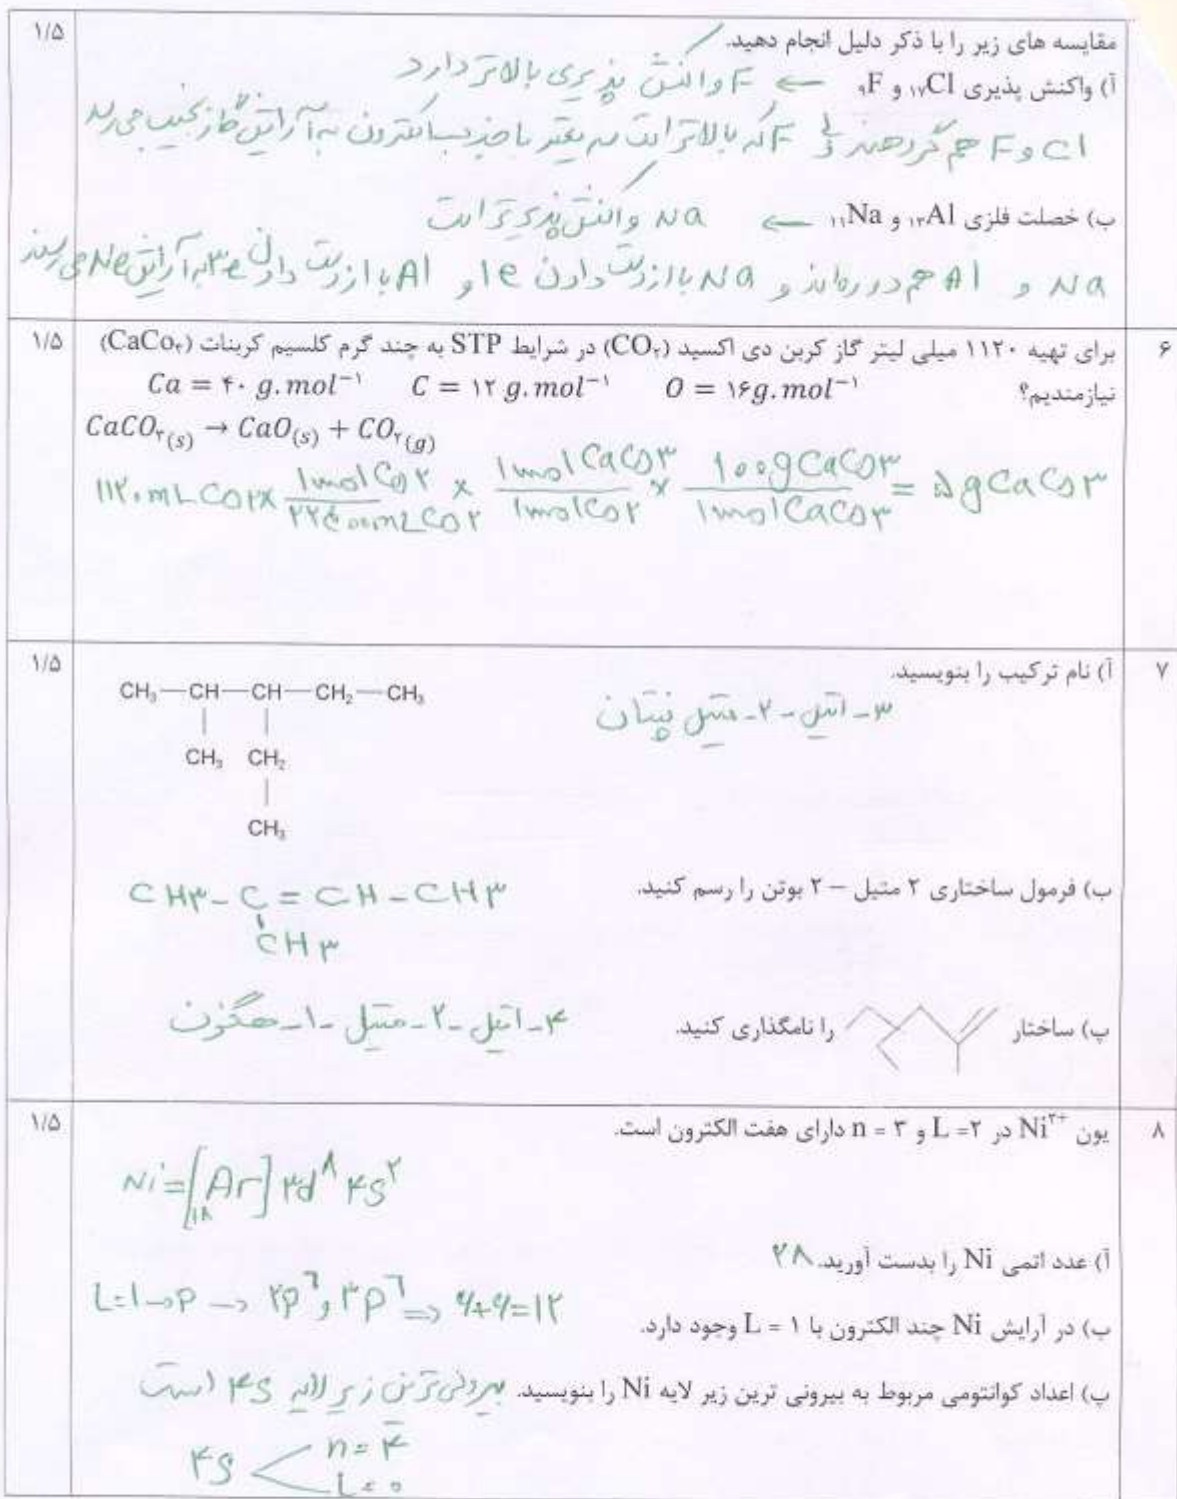 ۱/۵
مقایسه های زیر را با ذکر دلیل انجام دهید.
آ) واکنش پذیری ₁₇Cl و ₉F ← F واکنش پذیری بالاتر دارد
Cl و F هم گروهند ولی F که بالاتر است سریعتر با جذب الکترون به آرایش گاز نجیب می رسد
ب) خصلت فلزی ₁₃Al و ₁₁Na ← Na واکنش پذیرتر است
Na و Al هم دوره اند و Na با از دست دادن 1e و Al با از دست دادن ۳e به آرایش Ne می رسند
۶
۱/۵
برای تهیه ۱۱۲۰ میلی لیتر گاز کربن دی اکسید (CO₂) در شرایط STP به چند گرم کلسیم کربنات (CaCo₃)
نیازمندیم؟ Ca = ۴۰ g.mol⁻¹ C = ۱۲ g.mol⁻¹ O = ۱۶g.mol⁻¹
CaCO₃(s) → CaO(s) + CO₂(g)
۱۱۲۰ mL CO۲ × 1mol CO۲ / ۲۲۴۰۰mL CO۲ × 1mol CaCO۳ / 1mol CO۲ × 100g CaCO۳ / 1mol CaCO۳ = ۵g CaCO۳
۷
۱/۵
آ) نام ترکیب را بنویسید.
۳- اتیل -۲- متیل پنتان
CH₃—CH—CH—CH₂—CH₃
CH₃ CH₂
CH₃
ب) فرمول ساختاری ۲ متیل – ۲ بوتن را رسم کنید.
CH۳-C=CH-CH۳
CH۳
پ) ساختار را نامگذاری کنید.
۴- اتیل -۲- متیل -۱- هگزن
۸
۱/۵
یون Ni³⁺ در L =۲ و n = ۳ دارای هفت الکترون است.
Ni=[₁₈Ar] ۳d⁸ ۴s²
آ) عدد اتمی Ni را بدست آورید. ۲۸
ب) در آرایش Ni چند الکترون با L = ۱ وجود دارد.
L=1→P → ۲p⁶ و ۳p⁶ ⇒ ۶+۶=۱۲
پ) اعداد کوانتومی مربوط به بیرونی ترین زیر لایه Ni را بنویسید. بیرونی ترین زیر لایه ۴s است
۴s < n=۴
L=۰